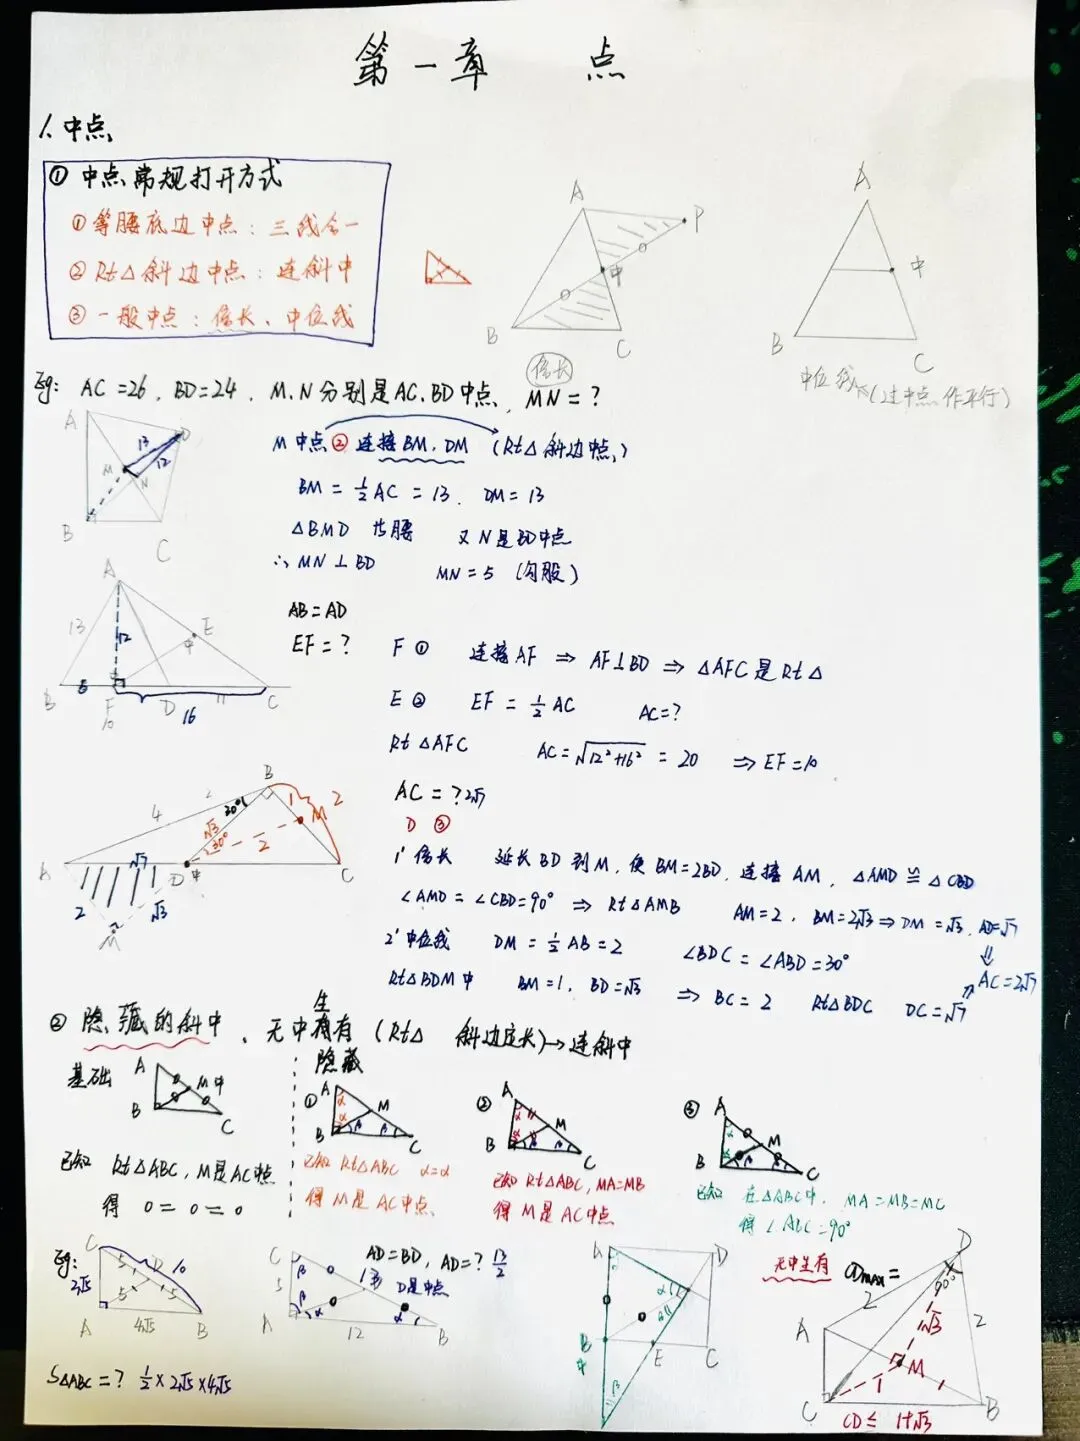 第一章 点
1. 中点
① 中点常规打开方式
① 等腰底边中点：三线合一
② Rt△斜边中点：连斜中
③ 一般中点：倍长、中位线
A P 中 B C
倍长
A 中 B C
中位线 (过中点作平行)
Eg: AC=26, BD=24, M.N分别是AC.BD中点, MN=?
A D 13 12 M N B C
M中点② 连接BM, DM (Rt△斜边中点)
BM = 1/2 AC = 13. DM=13
△BMD 等腰 又N是BD中点
∴ MN⊥BD MN=5 (勾股)
A 13 12 E 中 B 5 F D 11 C 16 10
AB=AD
EF=?
F ① 连接AF ⇒ AF⊥BD ⇒ △AFC是Rt△
E ② EF = 1/2 AC AC=?
Rt△AFC AC=√12²+16² = 20 ⇒ EF=10
B 4 30° 1 2 M √3 30° 2 A √7 D 中 C 2 √3 M
AC=? 2√7
D ③
1' 倍长 延长BD到M, 使BM=2BD, 连接AM, △AMD≌△CBD
∠AMD=∠CBD=90° ⇒ Rt△AMB AM=2, BM=2√3 ⇒ DM=√3, AD=√7
⇓
AC=2√7
2' 中位线 DM=1/2 AB=2 ∠BDC=∠ABD=30°
Rt△BDM中 BM=1, BD=√3 ⇒ BC=2 Rt△BDC DC=√7
② 隐藏的斜中、无中生有 (Rt△ 斜边定长)→连斜中
基础 A M中 B C
隐藏
① A α α M B β β C
② A α M α B β β C
③ A α M α B β C
已知 Rt△ABC, M是AC中点
得 0=0=0
已知Rt△ABC α=α
得 M是AC中点
已知Rt△ABC, MA=MB
得 M是AC中点
已知 在△ABC中, MA=MB=MC
得∠ABC=90°
Eg: C 5 D 10 2√5 5 5 A 4√5 B
S△ABC=? 1/2×2√5×4√5
C β 5 β α A 12 α B 13
AD=BD, AD=? 13/2
D是中点
A D α B 中 E C β
无中生有 CDmax=
D 90° 2 √3 2 A M 1 1 C B
CD≤1+√3